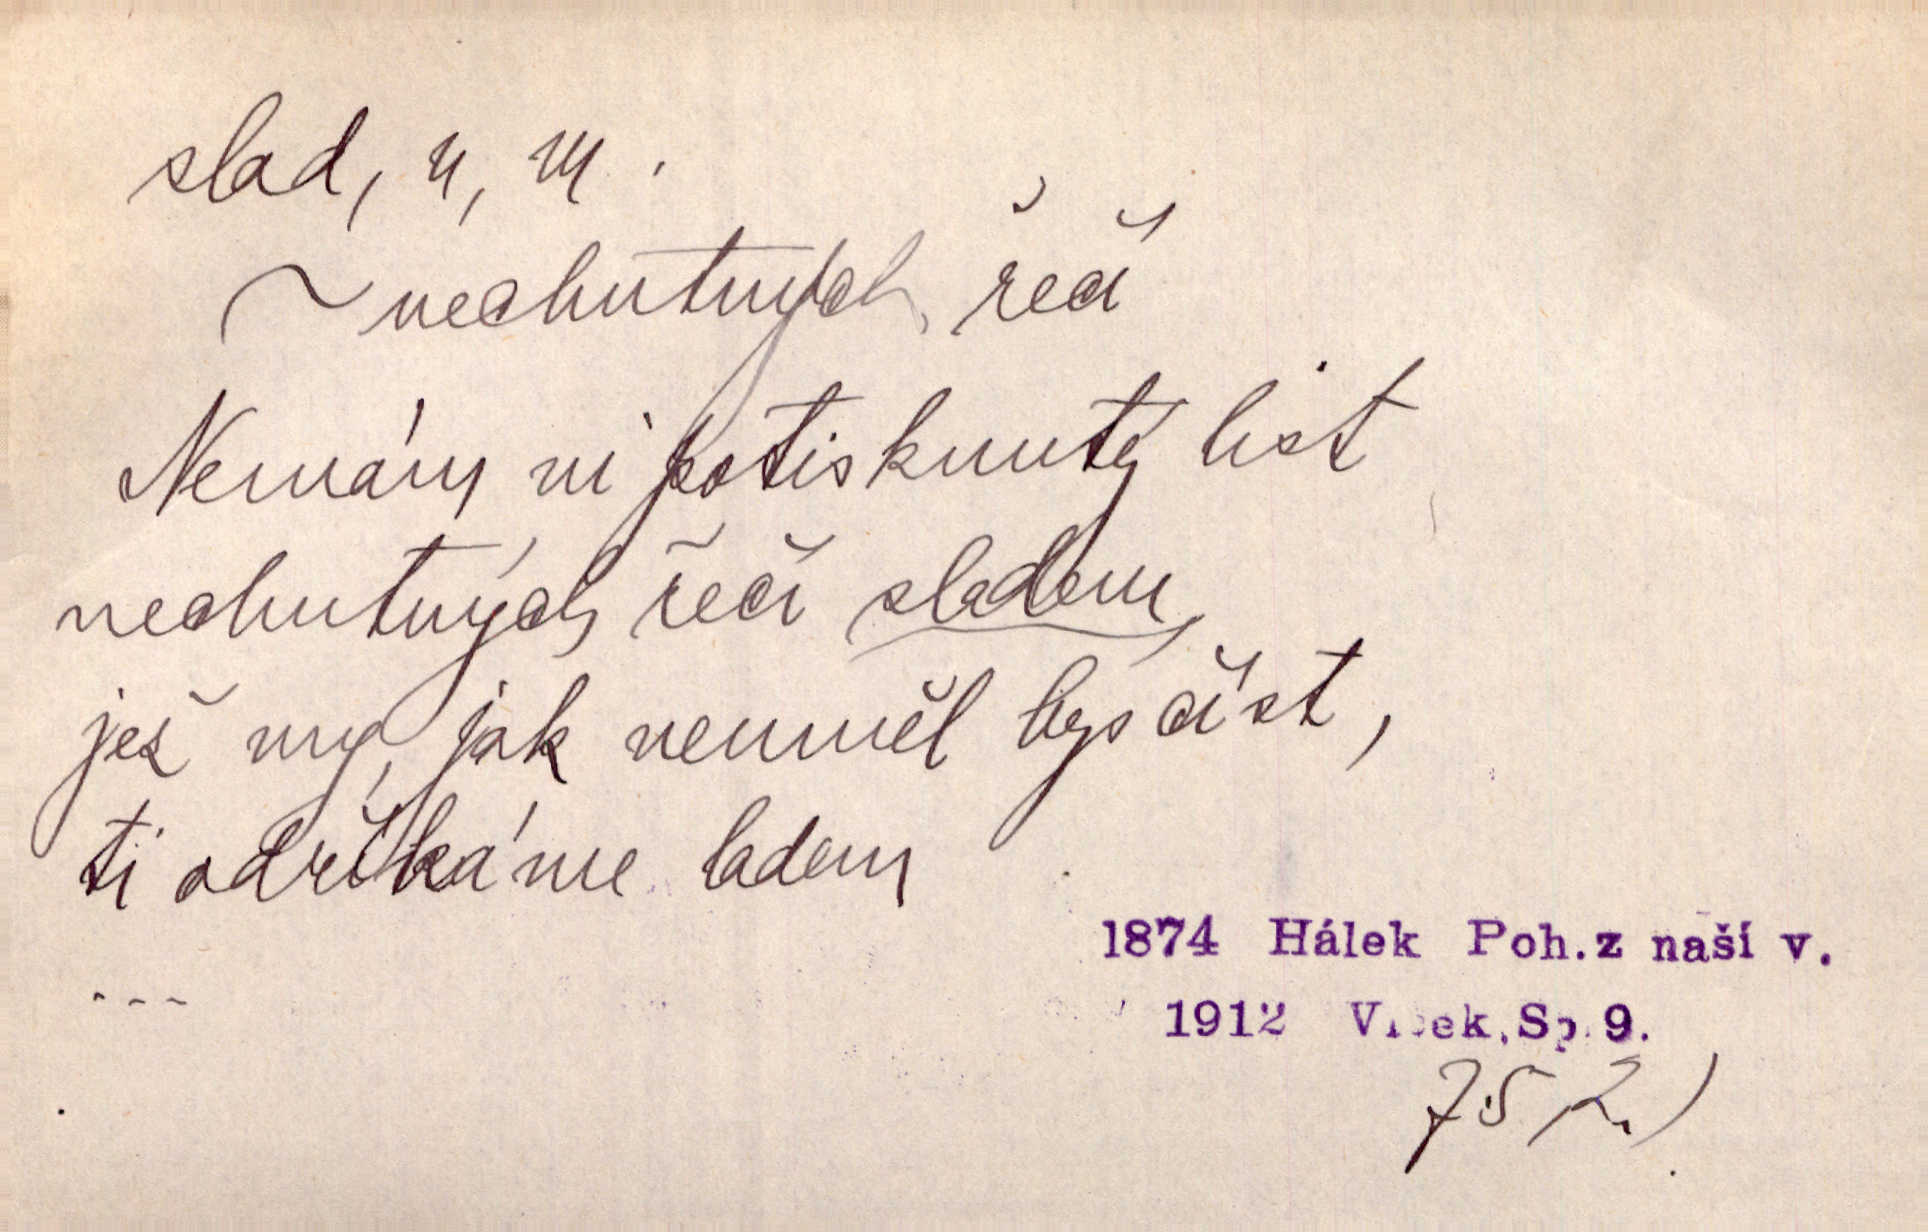 slad, u, m.
~ nechutných řečí
Nemám ni potisknutý list
nechutných řečí sladem,
jež my, jak neuměl bys číst,
ti odříkáme ladem
---
1874 Hálek Poh. z naší v.
1912 Vlček, Sp. 9.
75 /2.)